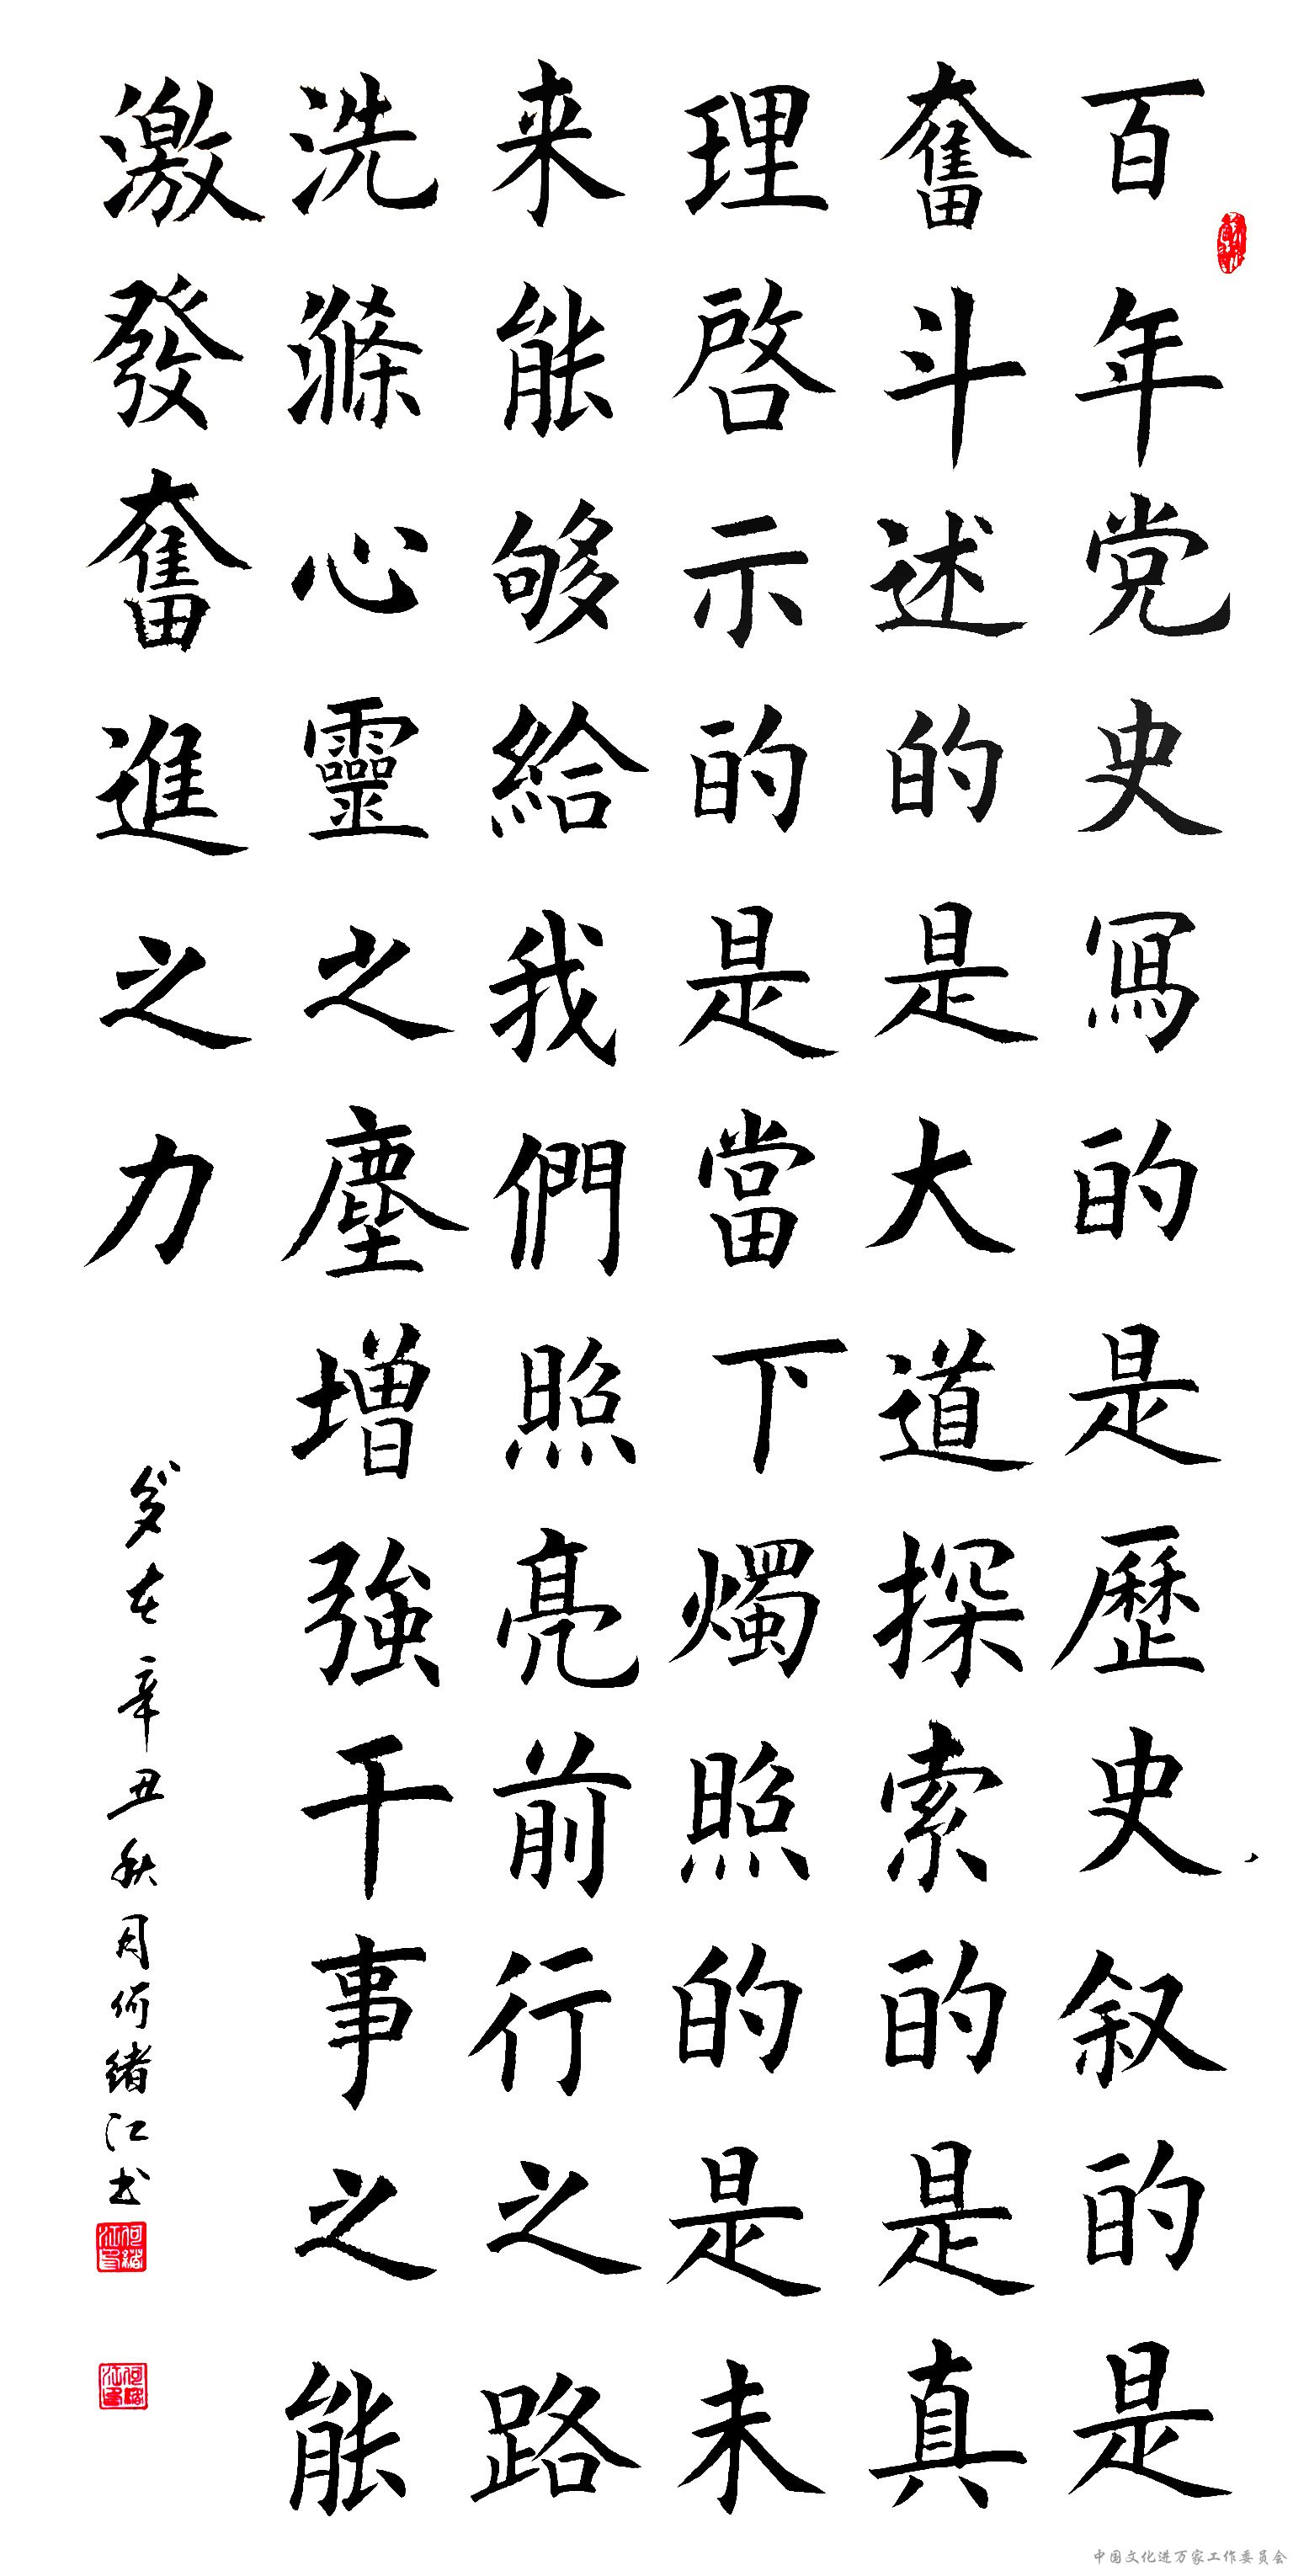 百年党史寫的是歷史叙的是
奮斗述的是大道探索的是真
理啓示的是當下燭照的是未
来能够給我們照亮前行之路
洗滌心靈之塵增強干事之能
激發奮進之力
歲在辛丑秋月何緒江书
中国文化进万家工作委员会